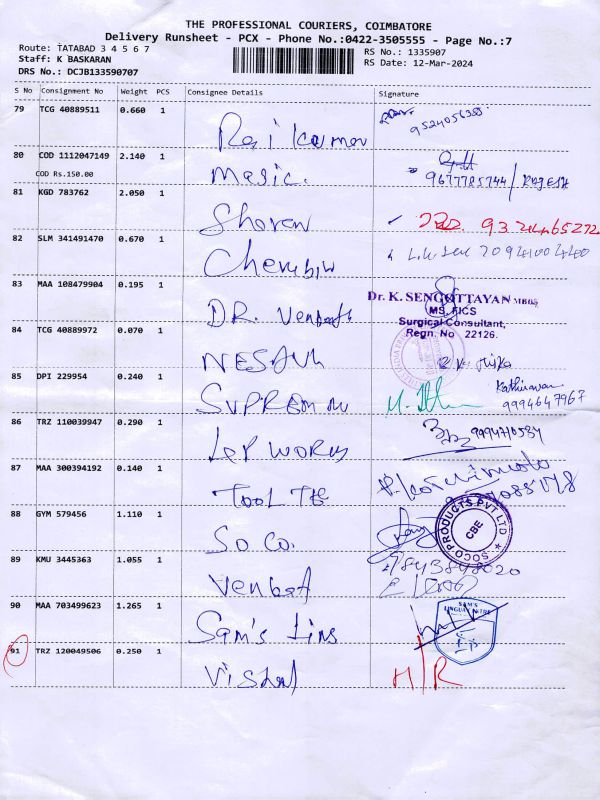 THE PROFESSIONAL COURIERS, COIMBATORE
Delivery Runsheet - PCX - Phone No.:0422-3505555 - Page No.:7
Route: TATABAD 3 4 5 6 7
Staff: K BASKARAN
DRS No.: DCJB133590707
RS No.: 1335907
RS Date: 12-Mar-2024
S No Consignment No Weight PCS Consignee Details Signature
79 TCG 40889511 0.660 1
9524056388
80 COD 1112047149 2.140 1 Magic.
COD Rs.150.00
9677785744 / RAJESH
81 KGD 783762 2.050 1 Sharan
82 SLM 341491470 0.670 1 Cherubin
83 MAA 108479904 0.195 1 DR. Venkat
Dr. K. SENGOTTAYAN MBBS
MS, FICS
Surgical Consultant,
Regn. No 22126.
84 TCG 40889972 0.070 1
85 DPI 229954 0.240 1 SUPREM
Kathiravan
9994647967
86 TRZ 110039947 0.290 1 WORLD
87 MAA 300394192 0.140 1 TOOL
88 GYM 579456 1.110 1 SO CO.
SOCO PRODUCTS PVT LTD
CBE
89 KMU 3445363 1.055 1 Venkat
90 MAA 703499623 1.265 1 Sam's
SAM'S
91 TRZ 120049506 0.250 1 Vishal H/R